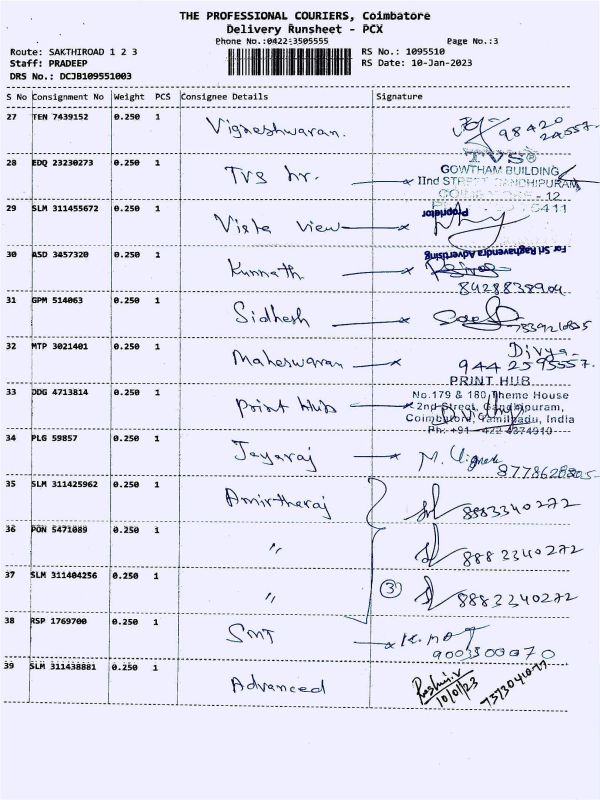 THE PROFESSIONAL COURIERS, Coimbatore
Delivery Runsheet - PCX
Phone No.:0422-3505555
Page No.:3
Route: SAKTHIROAD 1 2 3
RS No.: 1095510
Staff: PRADEEP
RS Date: 10-Jan-2023
DRS No.: DCJB109551003
S No Consignment No Weight PCS Consignee Details Signature
27 TEN 7439152 0.250 1 Vigneshwaran. 98420
28 EDQ 23230273 0.250 1 TVS hr.
TVS®
GOWTHAM BUILDING
IInd STREET GANDHIPURAM
- 12
5411
29 SLM 311455672 0.250 1 Vista View
Proprietor
30 ASD 3457320 0.250 1 Kunnath
For Sri Raghavendra Advertising
8428838904
31 GPM 514063 0.250 1 Sidhesh
32 MTP 3021401 0.250 1 Maheswaran
Divya
944 2595557.
33 DDG 4713814 0.250 1 Print Hub
PRINT HUB
No.179 & 180 Theme House
2nd Street, Gandhipuram,
Coimbatore, Tamilnadu, India
Ph: +91 - 422 4374910
34 PLG 59857 0.250 1 Jeyaraj
M. Vignesh
35 SLM 311425962 0.250 1 Amirtharaj
8883340272
36 PON 5471089 0.250 1 〃
8883340272
37 SLM 311404256 0.250 1 〃
③ 8883340272
38 RSP 1769700 0.250 1 SMT
39 SLM 311438881 0.250 1 Advanced
10/01/23